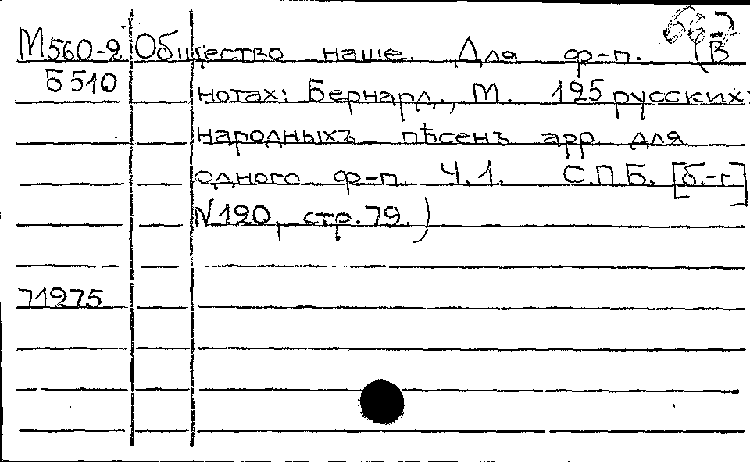 667
М560-2 Общество наше. Для ф-п. (В
Б510 нотах: Бернард, М. 125 русскихъ
народныхъ пѣсенъ арр. для
одного ф-п. Ч.1. С.П.Б. [б.-г.]
N 120, стр. 79.)
71275